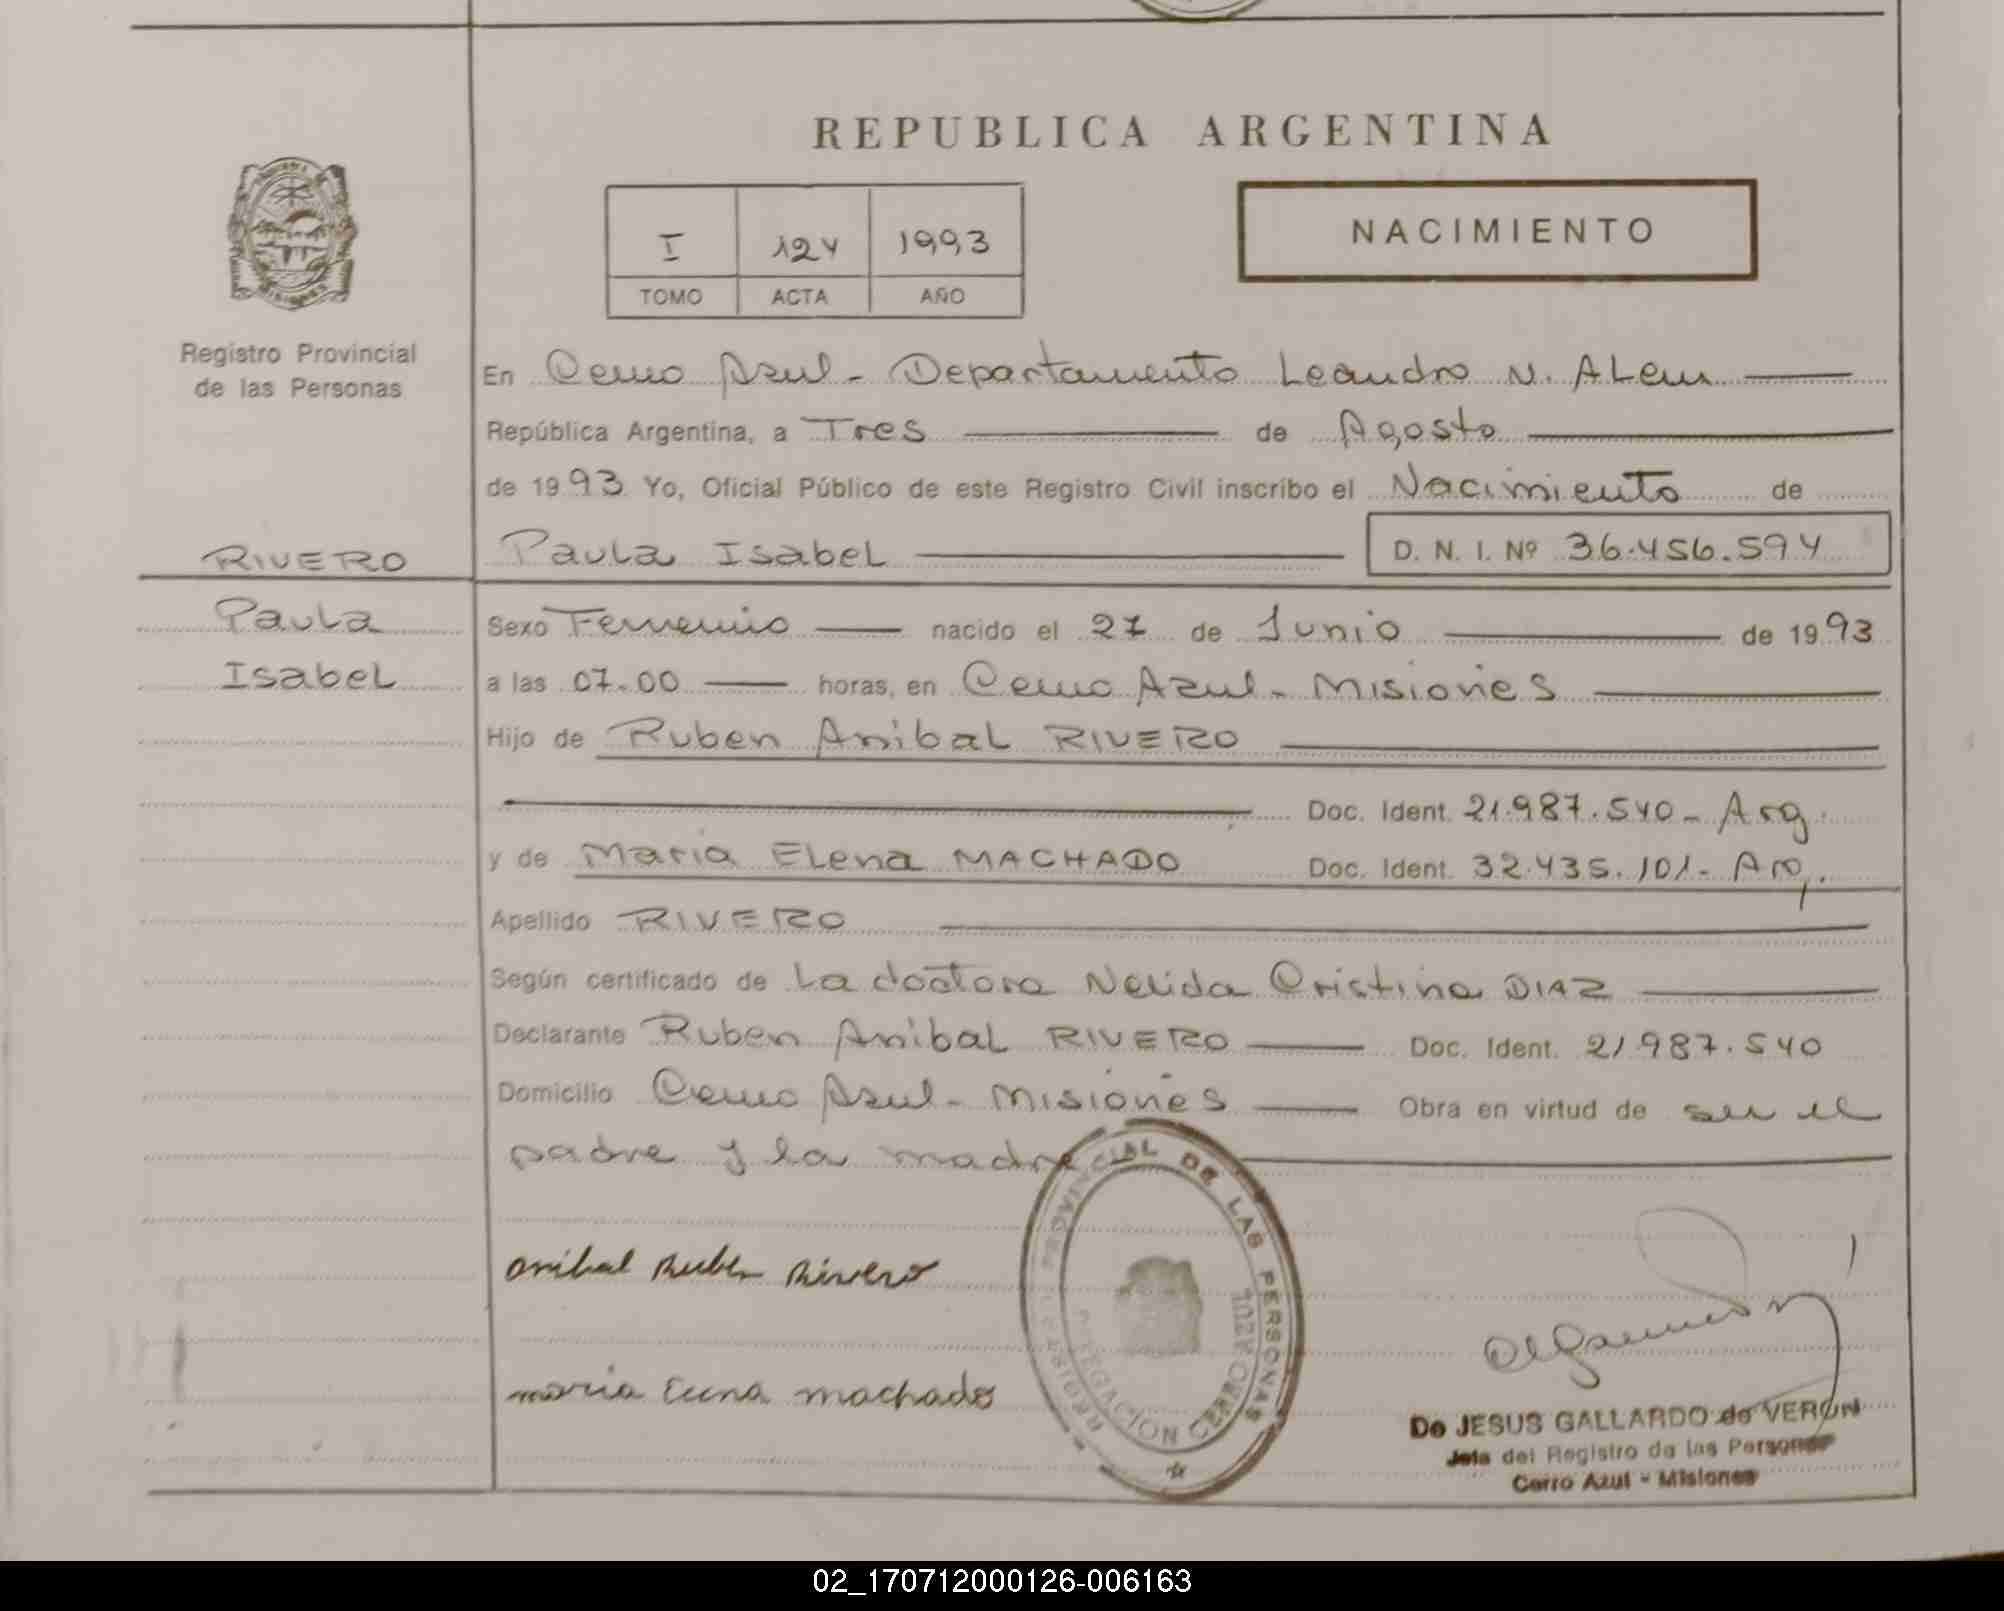 REPUBLICA ARGENTINA
I 124 1993
TOMO ACTA AÑO
NACIMIENTO
Registro Provincial
de las Personas
En Cerro Azul - Departamento Leandro N. ALem
República Argentina, a Tres de Agosto
de 1993 Yo, Oficial Público de este Registro Civil inscribo el Nacimiento de
RIVERO Paula Isabel D. N. I. Nº 36.456.594
Paula Sexo Femenino nacido el 27 de Junio de 1993
Isabel a las 07.00 horas, en Cerro Azul - Misiones
Hijo de Ruben Anibal RIVERO
Doc. Ident. 21.987.540 - Arg.
y de Maria Elena MACHADO Doc. Ident. 32.435.101 - Arg.
Apellido RIVERO
Según certificado de La doctora Nelida Cristina DIAZ
Declarante Ruben Anibal RIVERO Doc. Ident. 21987.540
Domicilio Cerro Azul - Misiones Obra en virtud de ser el
padre y la madre
anibal Ruben Rivero
maria Elena machado
REGISTRO PROVINCIAL DE LAS PERSONAS
DELEGACION CERRO AZUL
De JESUS GALLARDO de VERON
Jefa del Registro de las Personas
Cerro Azul - Misiones
02_170712000126-006163